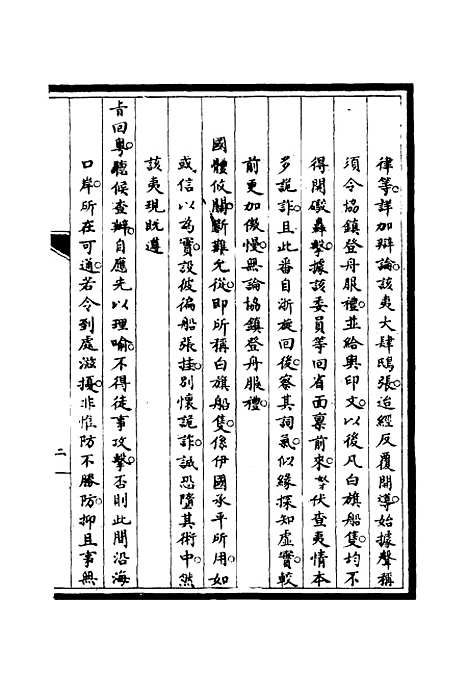 律等詳加辯論該夷大肆鴟張迨經反覆開導始據聲稱
須令協鎮登舟服禮並給與印文以後凡白旗船隻均不
得開礮轟擊據該委員等回省面稟前來伏查夷情本
多詭詐且此番自浙旋回後察其詞氣似緣探知虛實較
前更加傲慢無論協鎮登舟服禮
國體攸關斷難允從即所稱白旗船隻係伊國承平所用如
或信以為實設彼徧船張挂別懷詭詐誠恐墮其術中然
該夷現既遵
旨回粵聽候查辦自應先以理喻不得徒事攻擊否則此間沿海
口岸所在可通若令到處滋擾非惟防不勝防抑且事無
二